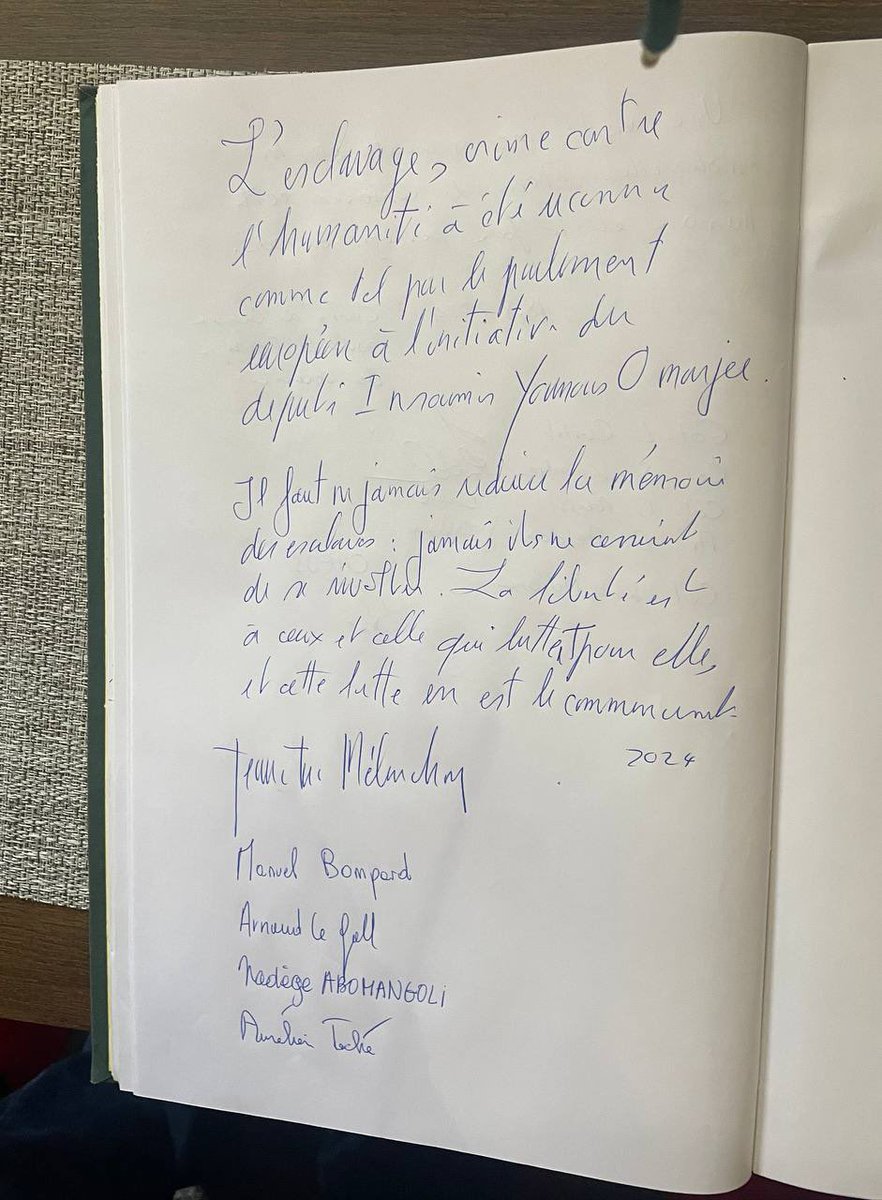 L'esclavage, crime contre
l'humanité à été reconnu
comme tel par le parlement
européen à l'initiative du
député Insoumis Younous Omarjee.
Il faut ne jamais réduire la mémoire
des esclaves : jamais ils ne cessèrent
de se révolter. La liberté est
à ceux et celle qui luttent pour elle,
et cette lutte en est le commencement
2024
Jean-Luc Mélenchon
Manuel Bompard
Arnaud Le Gall
Nadège ABOMANGOLI
Aurélien Taché